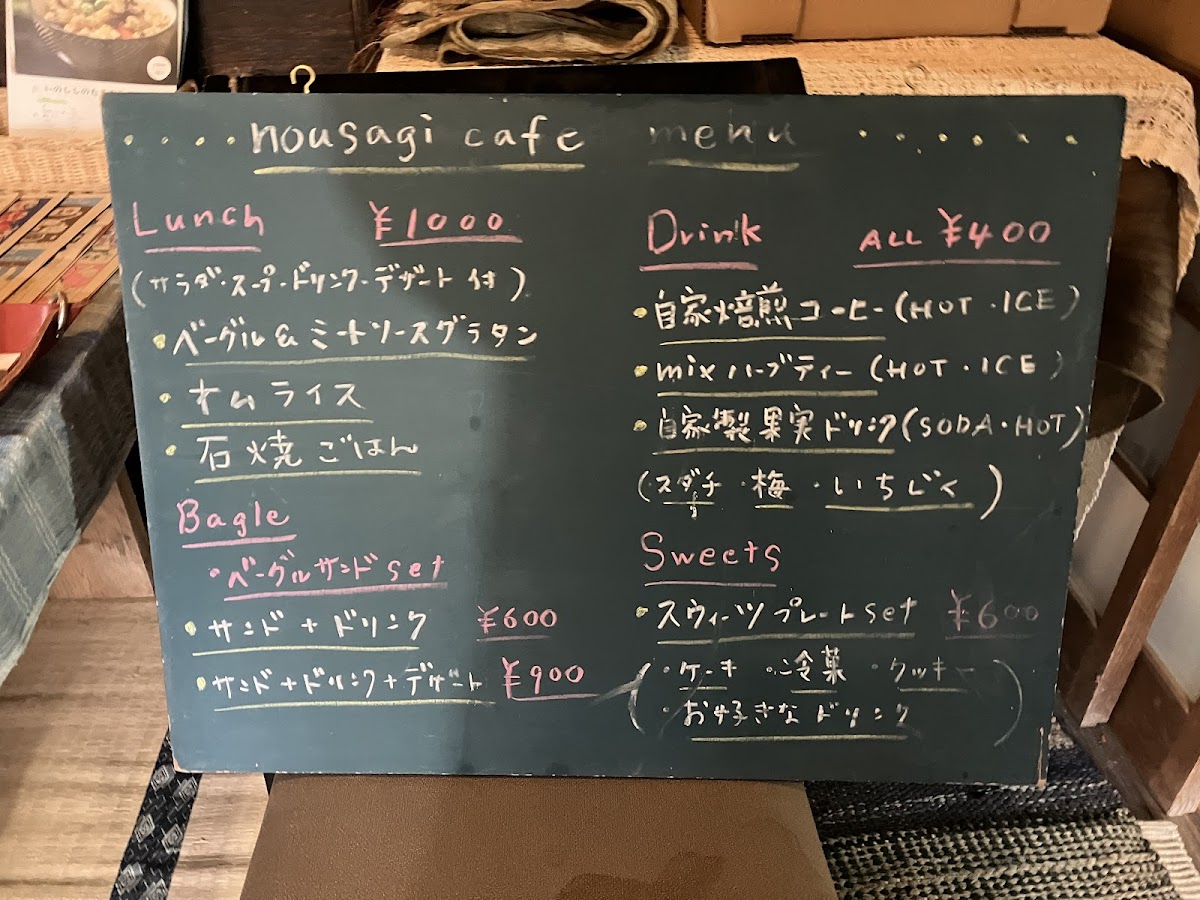 nousagi cafe menu
Lunch ¥1000
(サラダ・スープ・ドリンク・デザート付)
・ベーグル&ミートソースグラタン
・オムライス
・石焼ごはん
Bagle
・ベーグルサンドset
・サンド+ドリンク ¥600
・サンド+ドリンク+デザート ¥900
Drink ALL ¥400
・自家焙煎コーヒー(HOT・ICE)
・mixハーブティー(HOT・ICE)
・自家製果実ドリンク(SODA・HOT)
(スダチ・梅・いちじく)
Sweets
・スウィーツプレートset ¥600
(・ケーキ ・冷菓 ・クッキー
・お好きなドリンク)